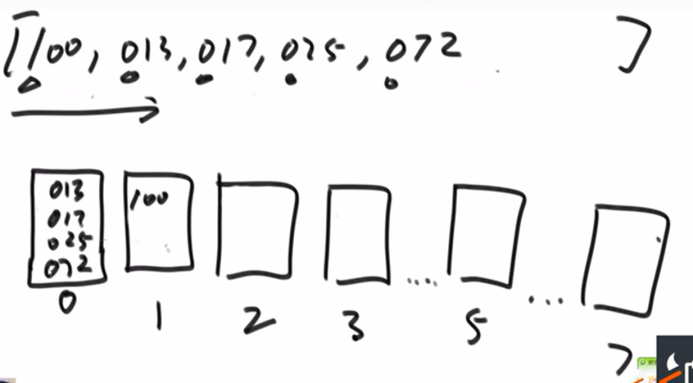 [100, 013, 017, 025, 072 ]
013
017
025
072
100
0 1 2 3 .... 5 ... 7